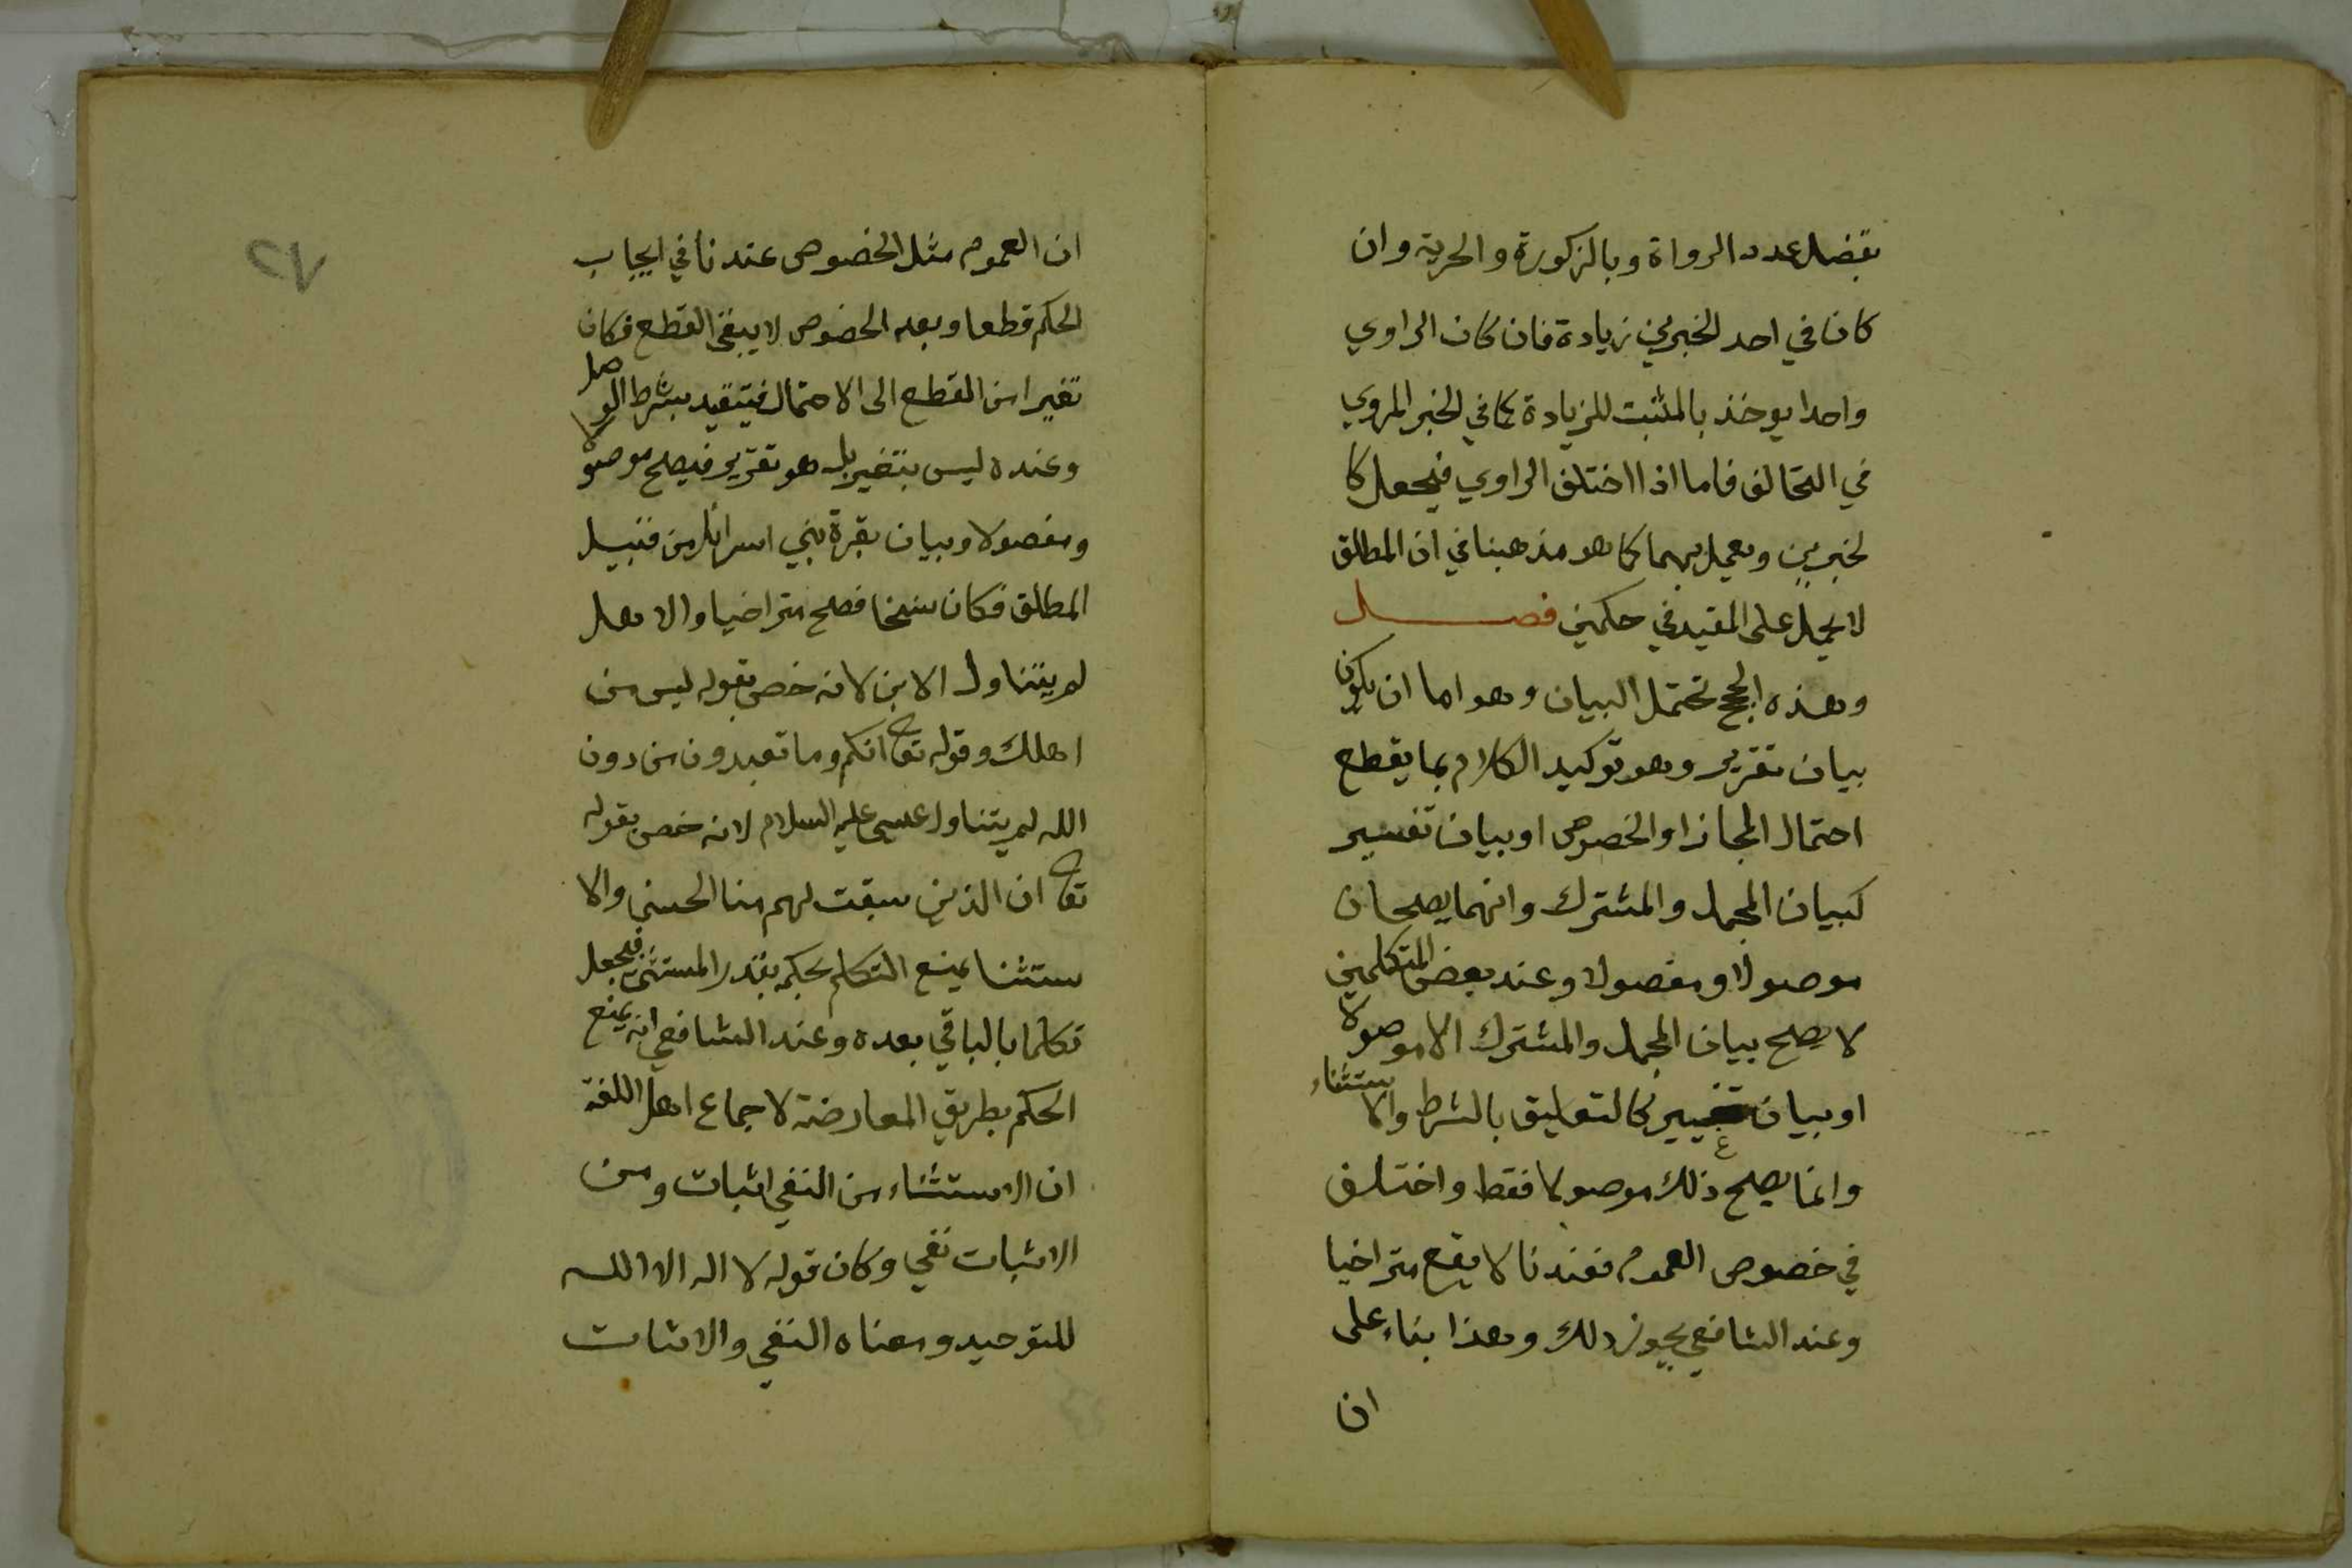 بفضل عدد الرواة وبالزكورة والحرية وان
كان في احد الخبرين زيادة فان كان الراوي
واحدا يوخذ بالمثبت للزيادة كما في الخبر المروي
في التحالف فاما اذا اختلف الراوي فيجعل كا
لخبرين ويعمل بهما كما هو مذهبنا في ان المطلق
لا يحمل على المقيد في حكمين فصل
وهذه الحجج تحتمل البيان وهو اما ان يكون
بيان تقرير وهو توكيد الكلام بما يقطع
احتمال المجاز او الخصوص او بيان تفسير
كبيان المجمل والمشترك وانهما يصلحان
موصولا ومفصولا وعند بعض المتكلمين
لا يصلح بيان المجمل والمشترك الا موصولا
او بيان تغيير كالتعليق بالشرط والاستثناء
وانما يصلح ذلك موصولا فقط واختلف
في خصوص العموم فعندنا لا يقع متراخيا
وعند الشافعي يجوز ذلك وهذا بناء على
ان
٧٢
ان العموم مثل الخصوص عندنا في ايجاب
الحكم قطعا وبعد الخصوص لا يبقى القطع فكان
تغيرا من القطع الى الاحتمال فيتقيد بشرط الوصل
وعنده ليس بتغير بل هو تقرير فيصلح موصولا
ومفصولا وبيان بقرة بني اسرائل من قبيل
المطلق فكان نسخا فصلح متراخيا والاهل
لم يتناول الابن لانه خص بقوله ليس من
اهلك وقوله تعا انكم وما تعبدون من دون
الله لم يتناول عيسى عليه السلام لانه خص بقوله
تعا ان الذين سبقت لهم منا الحسنى والا
ستثنا يمنع التكلم بحكمه بقدر المستثنى فيجعل
تكلما بالباقي بعده وعند الشافعي انه يمنع
الحكم بطريق المعارضة لاجماع اهل اللغة
ان الاستثناء من النفي اثبات ومن
الاثبات نفي وكان قوله لا اله الا الله
للتوحيد ومعناه النفي والاثبات